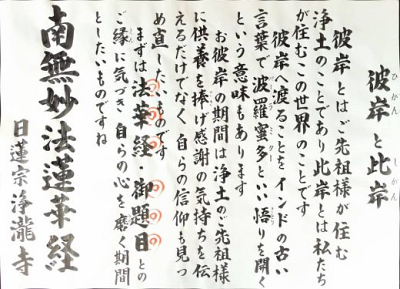 彼岸と此岸
ひがん しがん
彼岸とはご先祖様が住む
浄土のことであり此岸とは私たち
が住むこの世界のことです
彼岸へ渡ることをインドの古い
言葉で波羅蜜多といい悟りを開く
という意味もあります
お彼岸の期間は浄土のご先祖様
に供養を捧げ感謝の気持ちを伝
えるだけでなく自らの信仰も見つ
め直したいものです
まずは法華経・御題目との
ご縁に気づき自らの心を磨く期間
としたいものですね
南無妙法蓮華経
日蓮宗浄瀧寺